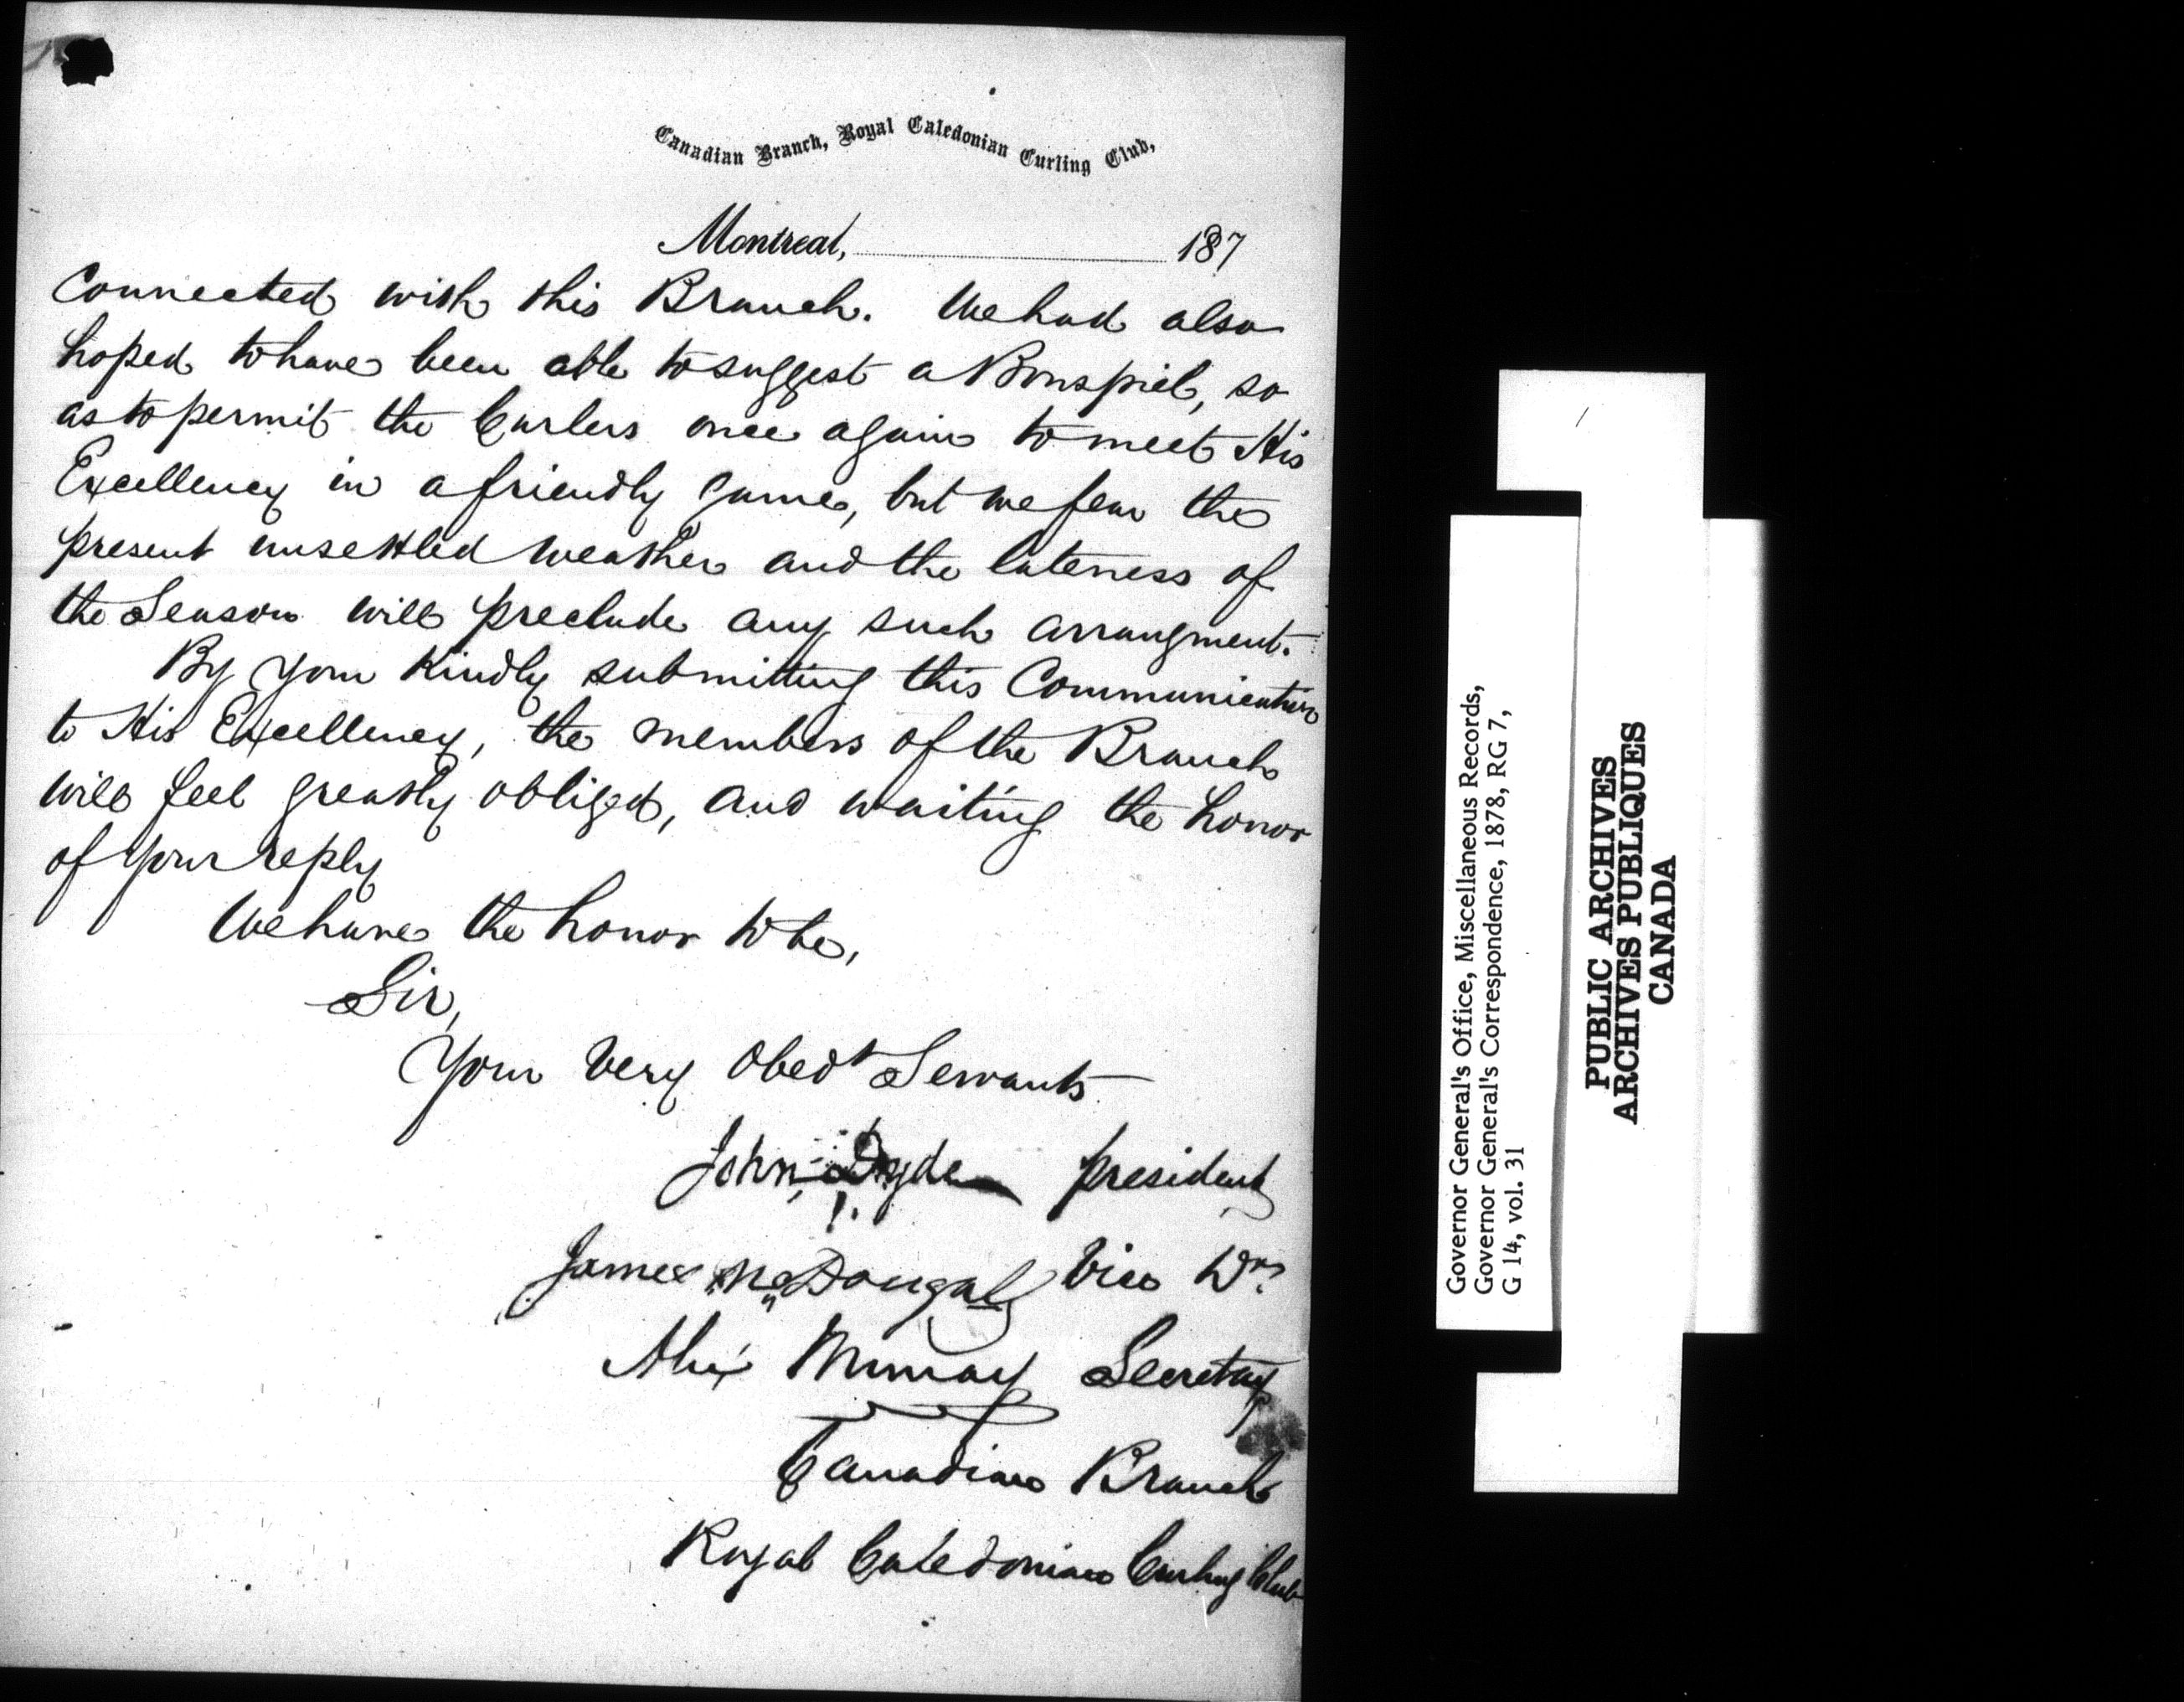 Canadian Branch, Royal Caledonian Curling Club,
Montreal, 187
Connected with this Branch. We had also
hoped to have been able to suggest a Bonspiel, so
as to permit the Curlers once again to meet His
Excellency in a friendly game, but we fear the
present unsettled weather and the lateness of
the Season will preclude any such arrangment.
By your Kindly submitting this Communication
to His Excellency, the members of the Branch
will feel greatly obliged, and waiting the honor
of your reply
We have the honor to be,
Sir,
Your Very Obedt Servants
John president
James McDougall Vice Do
Alex Murray Secretary
Canadian Branch
Royal Caledonian Curling Club
Governor General's Office, Miscellaneous Records,
Governor General's Correspondence, 1878, RG 7,
G 14, vol. 31
PUBLIC ARCHIVES
ARCHIVES PUBLIQUES
CANADA